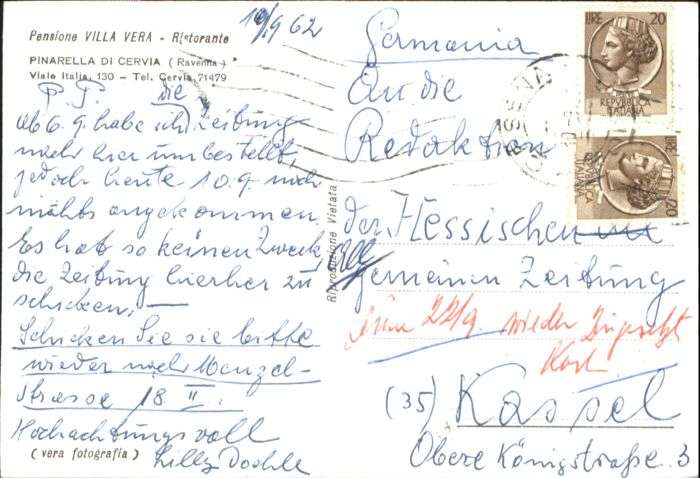 Pensione VILLA VERA - Ristorante
PINARELLA DI CERVIA (Ravenna)
Viale Italia, 130 - Tel. Cervia 71479
10/9 62
P. P. die
ab 6.9. habe ich Zeitung
nach hier umbestellt,
jedoch heute 10.9. noch
nichts angekommen
Es hat so keinen Zweck,
die Zeitung hierher zu
schicken. —
Schicken Sie sie bitte
wieder nach Menzel-
strasse 18 II.
Hochachtungsvoll
Lilly Doehle
(vera fotografia)
Riproduzione Vietata
LIRE 20
REPVBBLICA
ITALIANA
LIRE 20
REPVBBLICA
ITALIANA
Germania
An die
Redaktion
der Hessischen
Allgemeinen Zeitung
22/9 wieder
(35) Kassel
Obere Königstraße 3